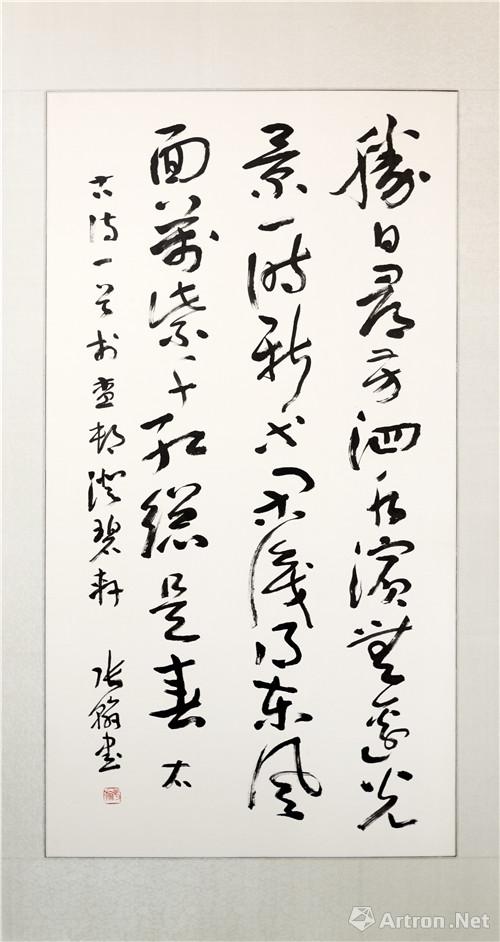 勝日尋芳泗水濱無邊光
景一時新等閑識得東風
面萬紫千紅總是春右
古詩一首於邨澄碧軒 張翰書
Artron.Net